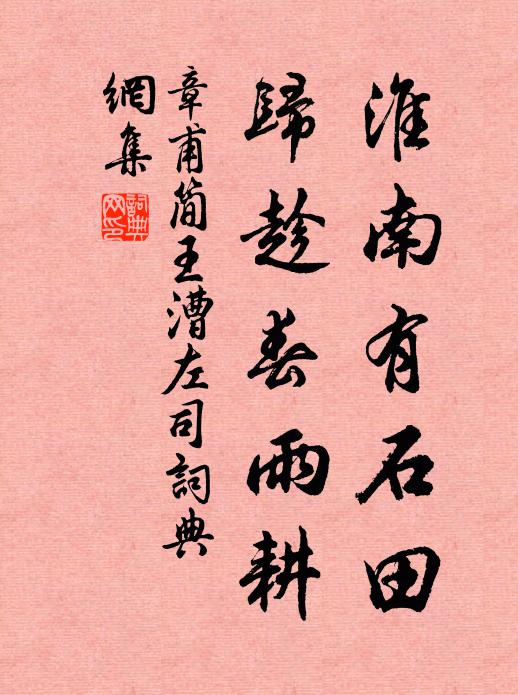 淮南有石田
歸趁春雨耕
章甫简王漕左司詞典
網集
詞典網印